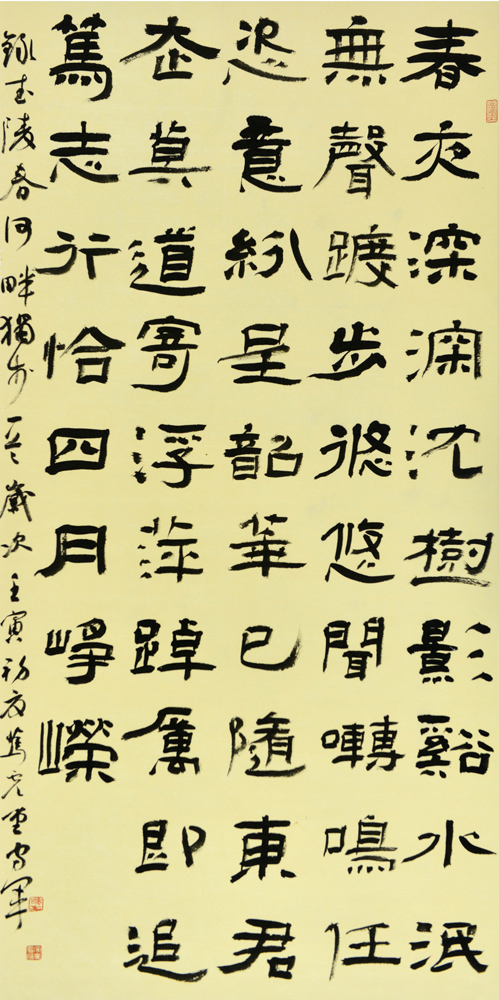 春夜深深沈樹影谿水泯
無聲踱步悠悠聞囀鳴任
恣意紛呈韶華已隨東君
去莫道寄浮萍踔厲即追
篤志行恰四月崢嶸
錄武陵春河畔獨步一歲次壬寅初夏篤堂軍